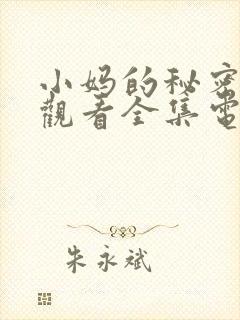 小妈的秘密
觀看全集電
朱永斌